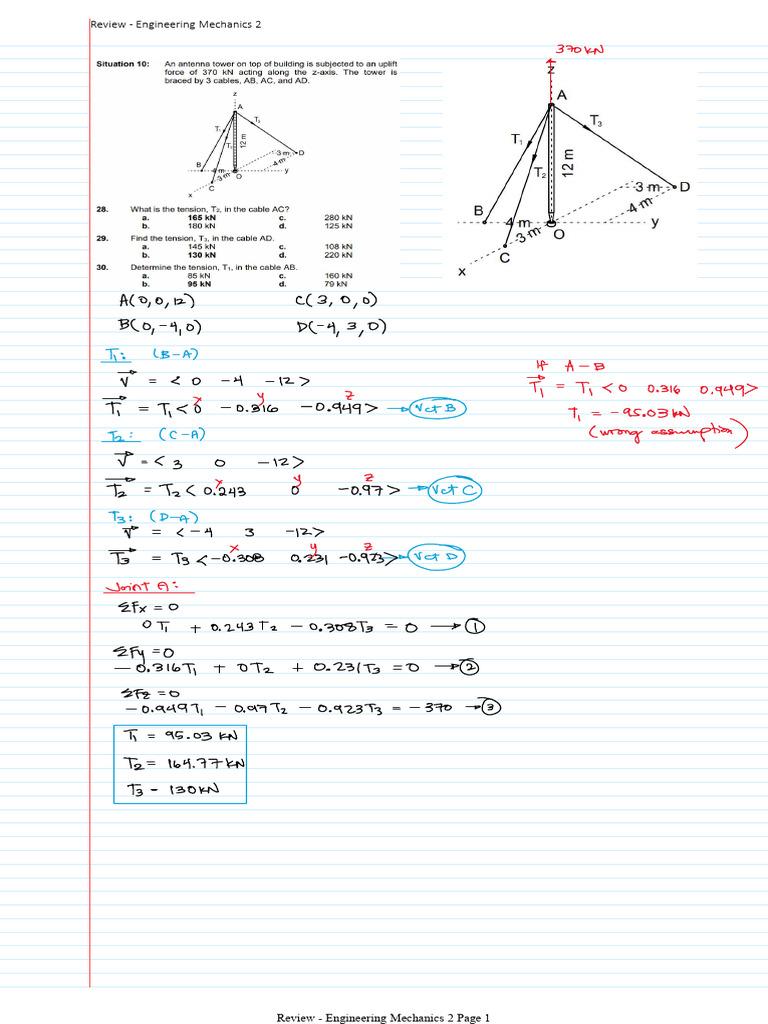 Review - Engineering Mechanics 2
Situation 10: An antenna tower on top of building is subjected to an uplift
force of 370 kN acting along the z-axis. The tower is
braced by 3 cables, AB, AC, and AD.
z
A
T₃
T₁
T₁
12 m
3 m
D
B
4 m
4 m
O
y
3 m
C
x
28. What is the tension, T₂, in the cable AC?
a. 165 kN c. 280 kN
b. 180 kN d. 125 kN
29. Find the tension, T₃, in the cable AD.
a. 145 kN c. 108 kN
b. 130 kN d. 220 kN
30. Determine the tension, T₁, in the cable AB.
a. 85 kN c. 160 kN
b. 95 kN d. 79 kN
370 KN
z
A
T₁
T₃
T₂
12 m
3 m
D
B
4 m
4 m
y
3 m
O
C
x
A(0,0,12) C(3,0,0)
B(0,-4,0) D(-4,3,0)
T₁: (B-A)
V = <0 -4 -12>
x y z
T₁ = T₁<0 -0.316 -0.949> → Vct B
If A-B
T₁ = T₁<0 0.316 0.949>
T₁ = -95.03 KN
(wrong assumption)
T₂: (C-A)
V = <3 0 -12>
x y z
T₂ = T₂<0.243 0 -0.97> → Vct C
T₃: (D-A)
V = <-4 3 -12>
x y z
T₃ = T₃<-0.308 0.231 -0.923> → Vct D
Joint A:
ΣFx = 0
0T₁ + 0.243T₂ - 0.308T₃ = 0 → ①
ΣFy = 0
-0.316T₁ + 0T₂ + 0.231T₃ = 0 → ②
ΣFz = 0
-0.949T₁ - 0.97T₂ - 0.923T₃ = -370 → ③
T₁ = 95.03 KN
T₂ = 164.77 KN
T₃ - 130 KN
Review - Engineering Mechanics 2 Page 1